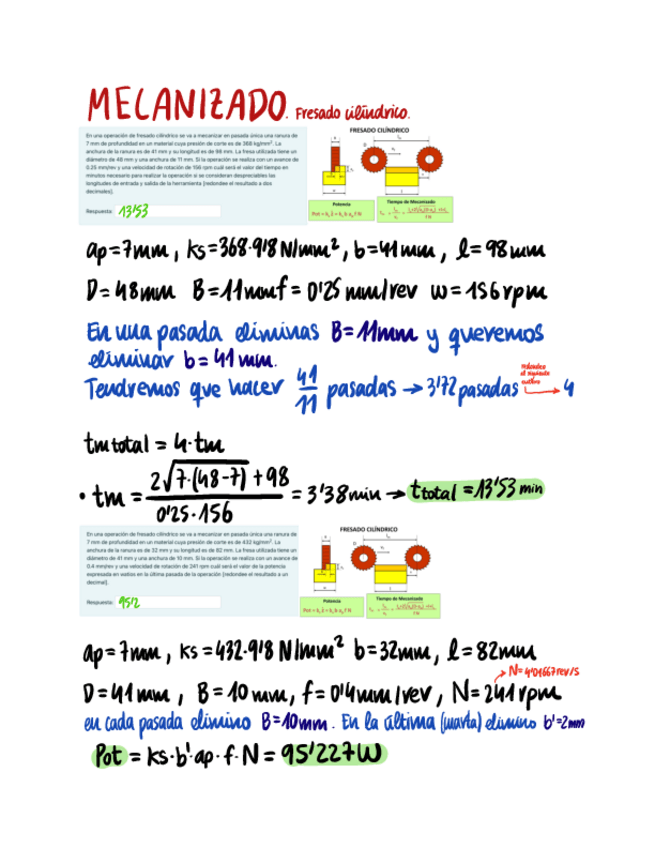 MECANIZADO. Fresado cilíndrico.
En una operación de fresado cilíndrico se va a mecanizar en pasada única una ranura de
7 mm de profundidad en un material cuya presión de corte es de 368 kg/mm². La
anchura de la ranura es de 41 mm y su longitud es de 98 mm. La fresa utilizada tiene un
diámetro de 48 mm y una anchura de 11 mm. Si la operación se realiza con un avance de
0.25 mm/rev y una velocidad de rotación de 156 rpm cuál será el valor del tiempo en
minutos necesario para realizar la operación si se consideran despreciables las
longitudes de entrada y salida de la herramienta [redondee el resultado a dos
decimales].
Respuesta: 13'53
FRESADO CILÍNDRICO
Potencia
Tiempo de Mecanizado
ap=7mm, ks=368·9'8 N/mm², b=41mm, l=98mm
D=48mm B=11mm f=0'25 mm/rev w=156rpm
En una pasada eliminas B=11mm y queremos
eliminar b=41 mm.
Tendremos que hacer 41/11 pasadas → 3'72 pasadas → 4
redondeo
al siguiente
entero
tm total = 4·tm
• tm = 2√7·(48-7) + 98 / 0'25·156 = 3'38min → t total = 13'53 min
En una operación de fresado cilíndrico se va a mecanizar en pasada única una ranura de
7 mm de profundidad en un material cuya presión de corte es de 432 kg/mm². La
anchura de la ranura es de 32 mm y su longitud es de 82 mm. La fresa utilizada tiene un
diámetro de 41 mm y una anchura de 10 mm. Si la operación se realiza con un avance de
0.4 mm/rev y una velocidad de rotación de 241 rpm cuál será el valor de la potencia
expresada en vatios en la última pasada de la operación [redondee el resultado a un
decimal].
Respuesta: 95'2
FRESADO CILÍNDRICO
Potencia
Tiempo de Mecanizado
ap=7mm, ks=432·9'8 N/mm² b=32mm, l=82mm
N=4'01667rev/s
D=41mm, B=10mm, f=0'4mm/rev, N=241rpm
en cada pasada elimino B=10mm. En la última (cuarta) elimino b'=2mm
Pot = ks·b'·ap·f·N = 95'227W